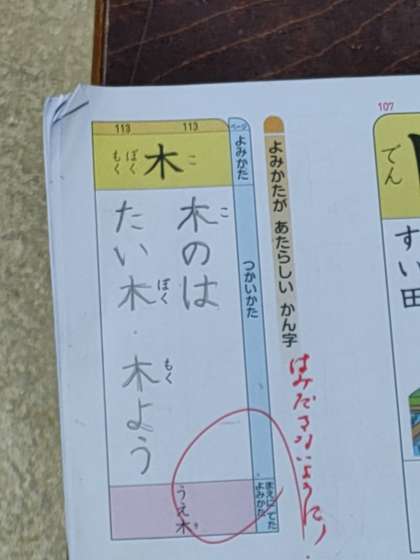 107
でん
すい
田
よみかたが あたらしい かん字
はみださないように!
ページ
よみかた
つかいかた
まえにでた
よみかた
113
113
木
こ
ぼく
もく
木のは
こ
たい木・木よう
ぼく
もく
うえ木
き